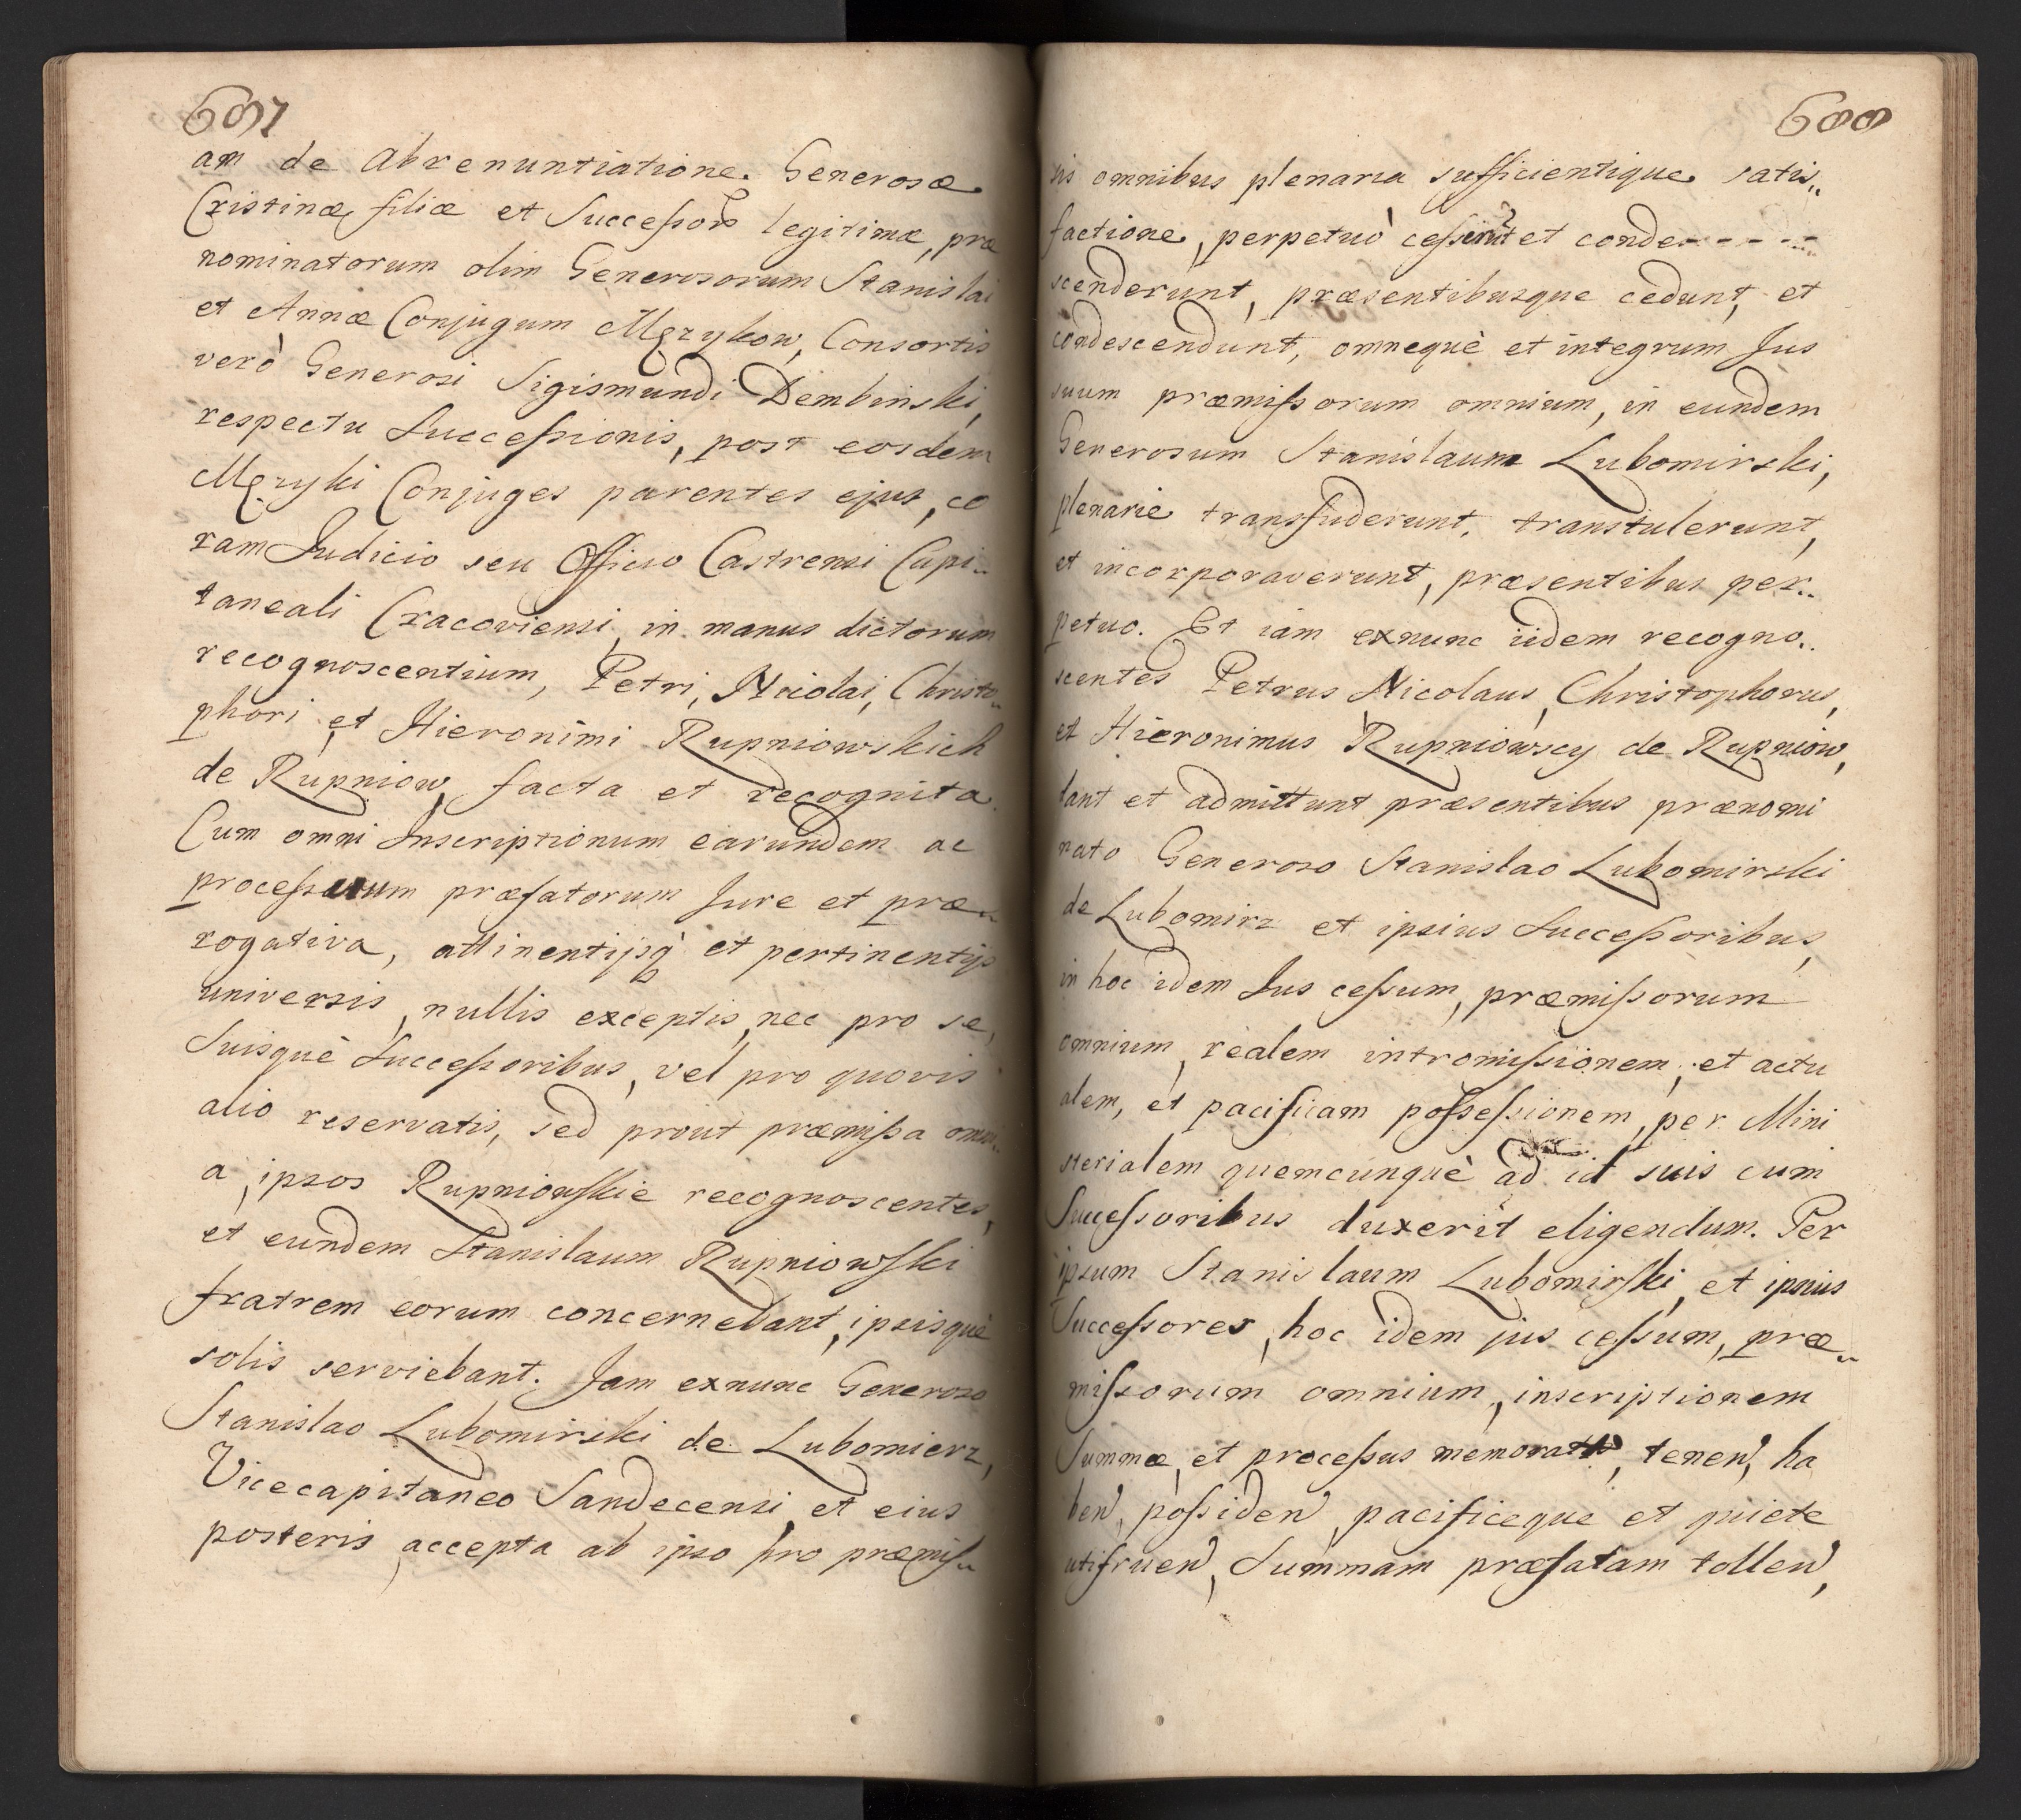 687
am de Abrenuntiatione Generosæ
Cristinæ filiæ et Succeſsoris legitimæ, præ
nominatorum olim Generosorum Stanislai
et Annæ Conjugum Męzykow, Consortis
verò Generosi Sigismundi Dembinski,
respectu Succeſsionis, post eosdem
Męzyki Conjuges parentes ejus, co
ram Judicio seu Officio Castrensi Capi„
taneali Cracoviensi, in manus dictorum
recognoscentium, Petri, Nicolai, Christo„
phori et Hieronimi Rupniowskich
de Rupniow, facta et recognita.
Cum omni Inscriptionum earundem ac
proceſsuum præfatorum Jure et præ„
rogativa, attinentijsq̀ et pertinentijs
universis, nullis exceptis, nec pro se,
Suisquè Succeſsoribus, vel pro quovis
alio reservatis, sed prout præmiſsa omni„
a, ipsos Rupniowſkie recognoscentes,
et eundem Stanislaum Rupniowſki
fratrem eorum concernebant, ipsisquè
solis serviebant. Jam exnunc Generoso
Stanislao Lubomirski de Lubomierz,
Vicecapitaneo Sandecensi, et eius
posteris, accepta ab ipso pro præmiſ„
688
sis omnibus plenaria sufficientique satis„
factione, perpetuò ceſserunt et conde- - - -
scenderunt, præsentibusque cedunt, et
condescendunt, omnequè et integrum Jus
suum præmiſsorum omnium, in eundem
Generosum Stanislaum Lubomirski,
plenarie transfuderunt, transtulerunt,
et incorporaverunt, præsentibus per„
petuo. Et iam exnunc iidem recogno„
scentes Petrus, Nicolaus, Christophorus,
et Hieronimus Rupniowscy de Rupniow,
dant et admittunt præsentibus prænomi
nato Generoso Stanislao Lubomirski
de Lubomirz et ipsius Succeſsoribus,
in hoc idem Jus ceſsum, præmiſsorum
omnium, realem intromiſsionem, et actu
alem, et pacificam poſseſsionem, per Mini
sterialem quemcunquè ad id suis cum
Succeſsoribus duxerit eligendum. Per
ipsum Stanislaum Lubomirſki, et ipsius
Succeſsores, hoc idem jus ceſsum, præ„
miſsorum omnium, inscriptionem
Summæ, et proceſsus memorat, tenen, ha
ben, poſsiden, pacificeque et quiete
utifruen, Summam præfatam tollen,